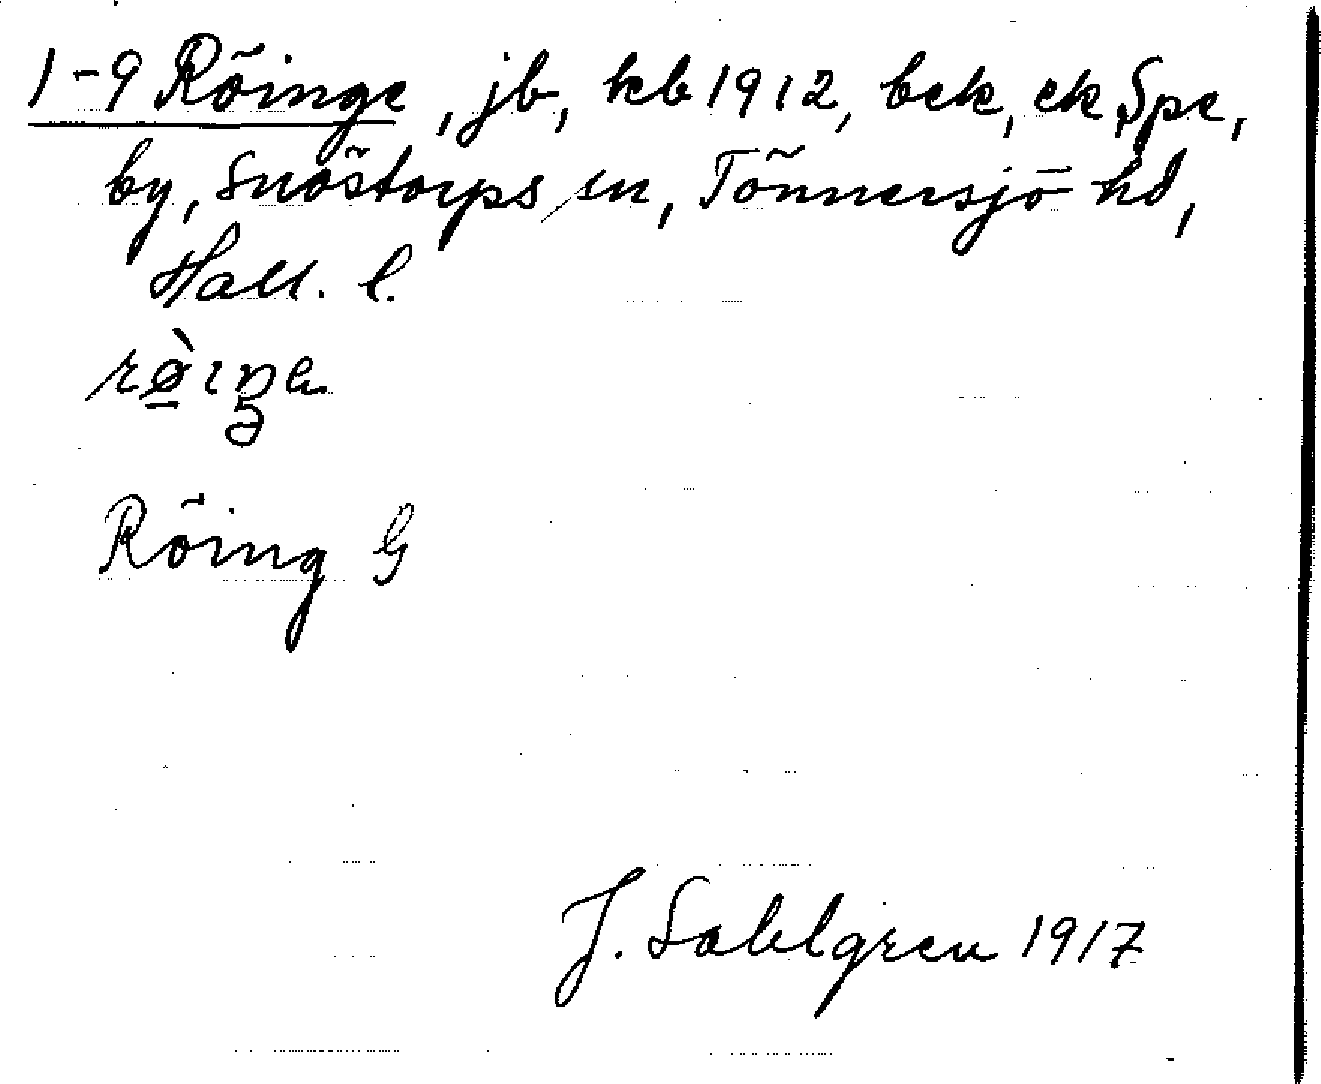 1-9 Röinge, jb, kb 1912, bek, ek, Spe,
by, Snöstorps sn, Tönnersjö hd,
Hall. l.
Röing G
J. Sahlgren 1917